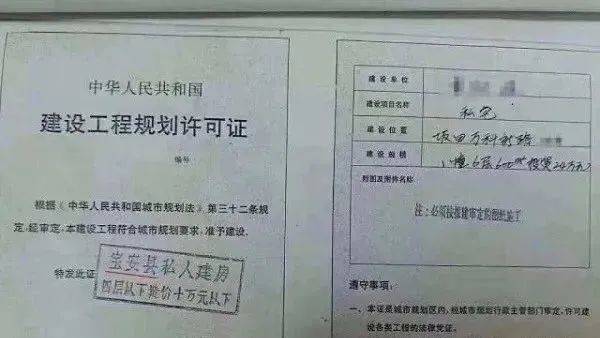 中华人民共和国
建设工程规划许可证
编号
根据《中华人民共和国城市规划法》第三十二条规
定,经审定,本建设工程符合城市规划要求,准予建设。
特发此证
宝安县私人建房
四层以下造价十万元以下
建设单位
建设项目名称 私宅
建设位置 坂田万科新
建设规模 1幢6层600m² 投资24万元
附图及附件名称
注:必须按报建审定的图纸施工
遵守事项:
一、本证是城市规划区内,经城市规划行政主管部门审定,许可建
设各类工程的法律凭证。